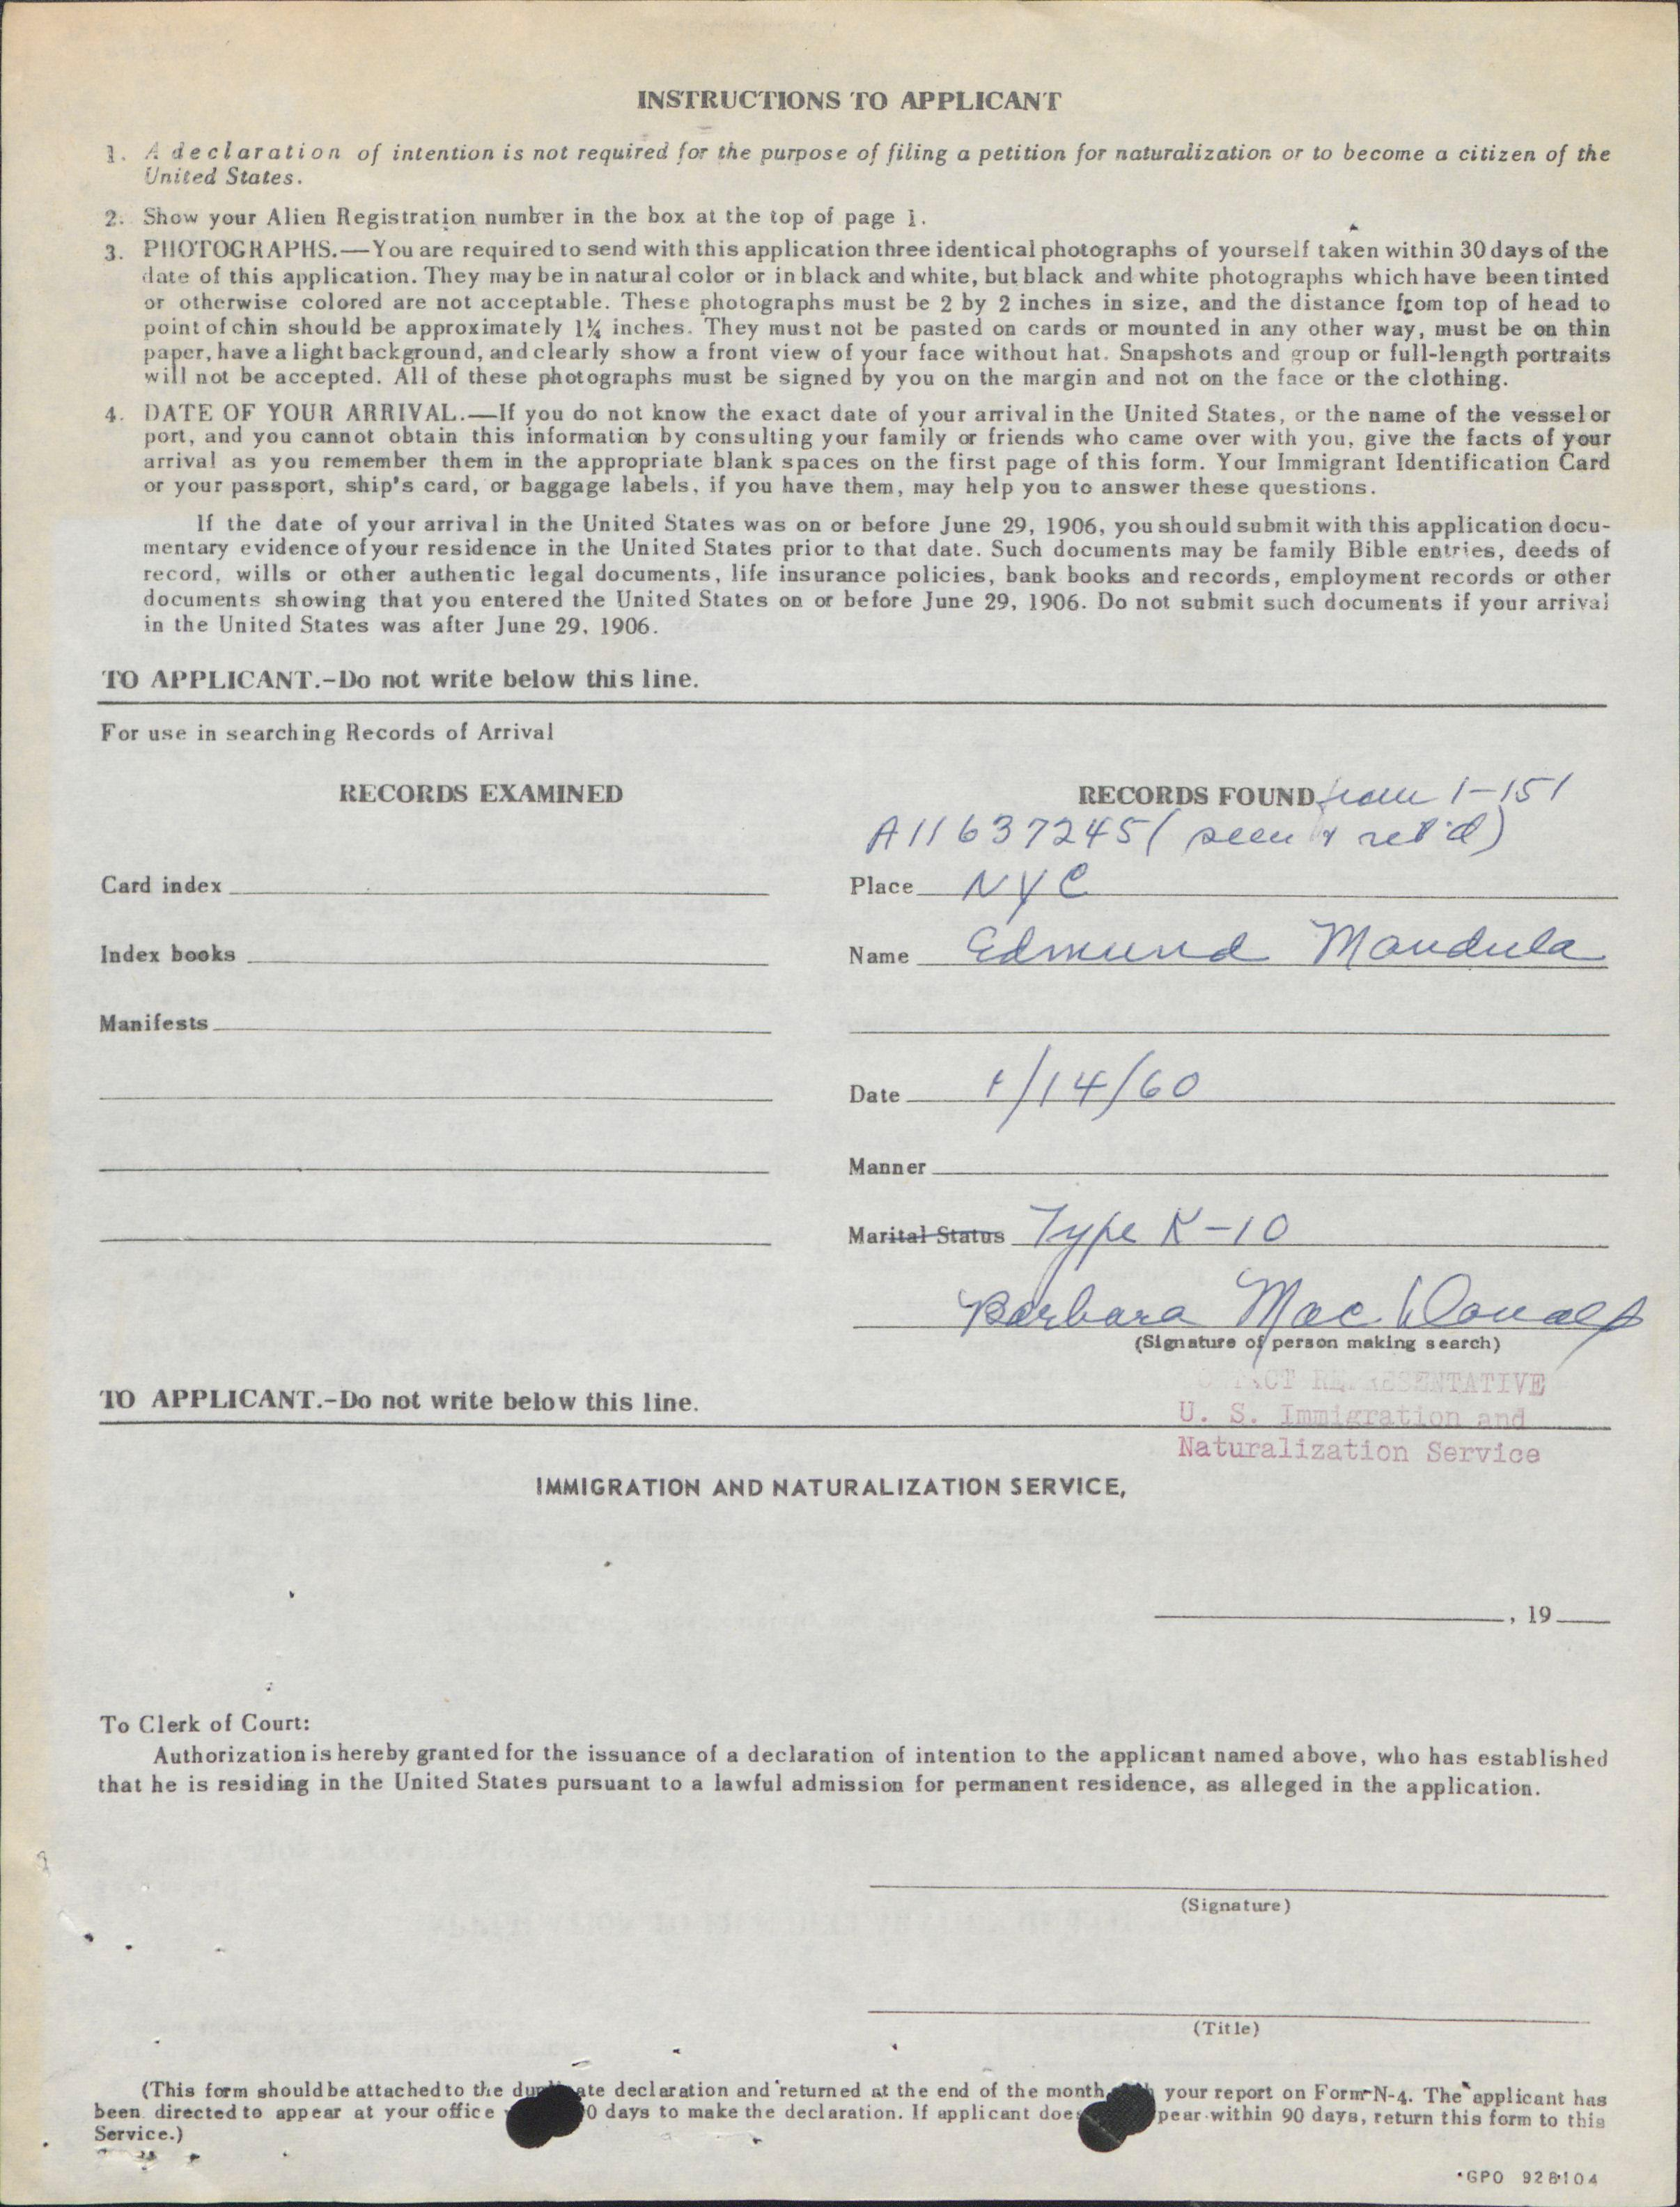 INSTRUCTIONS TO APPLICANT
1. A declaration of intention is not required for the purpose of filing a petition for naturalization or to become a citizen of the
United States.
2. Show your Alien Registration number in the box at the top of page 1.
3. PHOTOGRAPHS.—You are required to send with this application three identical photographs of yourself taken within 30 days of the
date of this application. They may be in natural color or in black and white, but black and white photographs which have been tinted
or otherwise colored are not acceptable. These photographs must be 2 by 2 inches in size, and the distance from top of head to
point of chin should be approximately 1¼ inches. They must not be pasted on cards or mounted in any other way, must be on thin
paper, have a light background, and clearly show a front view of your face without hat. Snapshots and group or full-length portraits
will not be accepted. All of these photographs must be signed by you on the margin and not on the face or the clothing.
4. DATE OF YOUR ARRIVAL.—If you do not know the exact date of your arrival in the United States, or the name of the vessel or
port, and you cannot obtain this information by consulting your family or friends who came over with you, give the facts of your
arrival as you remember them in the appropriate blank spaces on the first page of this form. Your Immigrant Identification Card
or your passport, ship's card, or baggage labels, if you have them, may help you to answer these questions.
If the date of your arrival in the United States was on or before June 29, 1906, you should submit with this application docu-
mentary evidence of your residence in the United States prior to that date. Such documents may be family Bible entries, deeds of
record, wills or other authentic legal documents, life insurance policies, bank books and records, employment records or other
documents showing that you entered the United States on or before June 29, 1906. Do not submit such documents if your arrival
in the United States was after June 29, 1906.
TO APPLICANT.-Do not write below this line.
For use in searching Records of Arrival
RECORDS EXAMINED
Card index
Index books
Manifests
RECORDS FOUND from 1-151
A11637245 (seen & ret'd)
Place NYC
Name Edmund Mandula
Date 1/14/60
Manner
Marital Status Type K-10
Barbara MacDonald
(Signature of person making search)
REPRESENTATIVE
U. S. Immigration and
Naturalization Service
TO APPLICANT.-Do not write below this line.
IMMIGRATION AND NATURALIZATION SERVICE,
, 19
To Clerk of Court:
Authorization is hereby granted for the issuance of a declaration of intention to the applicant named above, who has established
that he is residing in the United States pursuant to a lawful admission for permanent residence, as alleged in the application.
(Signature)
(Title)
(This form should be attached to the duplicate declaration and returned at the end of the month your report on Form N-4. The applicant has
been directed to appear at your office 0 days to make the declaration. If applicant does pear within 90 days, return this form to this
Service.)
GPO 928104